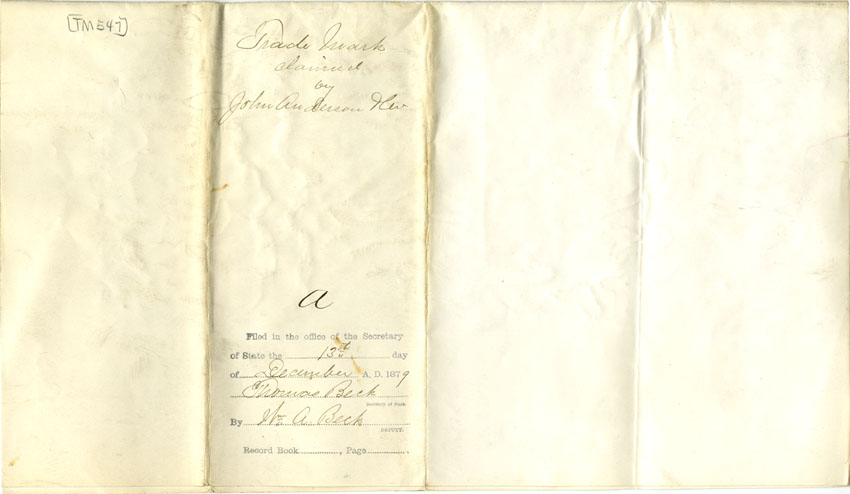 [TM547]
Trade Mark
claimed
by
John Anderson
a
Filed in the office of the Secretary
of State the 13th day
of December A. D. 1879
Thomas Beck
Secretary of State.
By Wm A. Beck
DEPUTY.
Record Book.............., Page..............